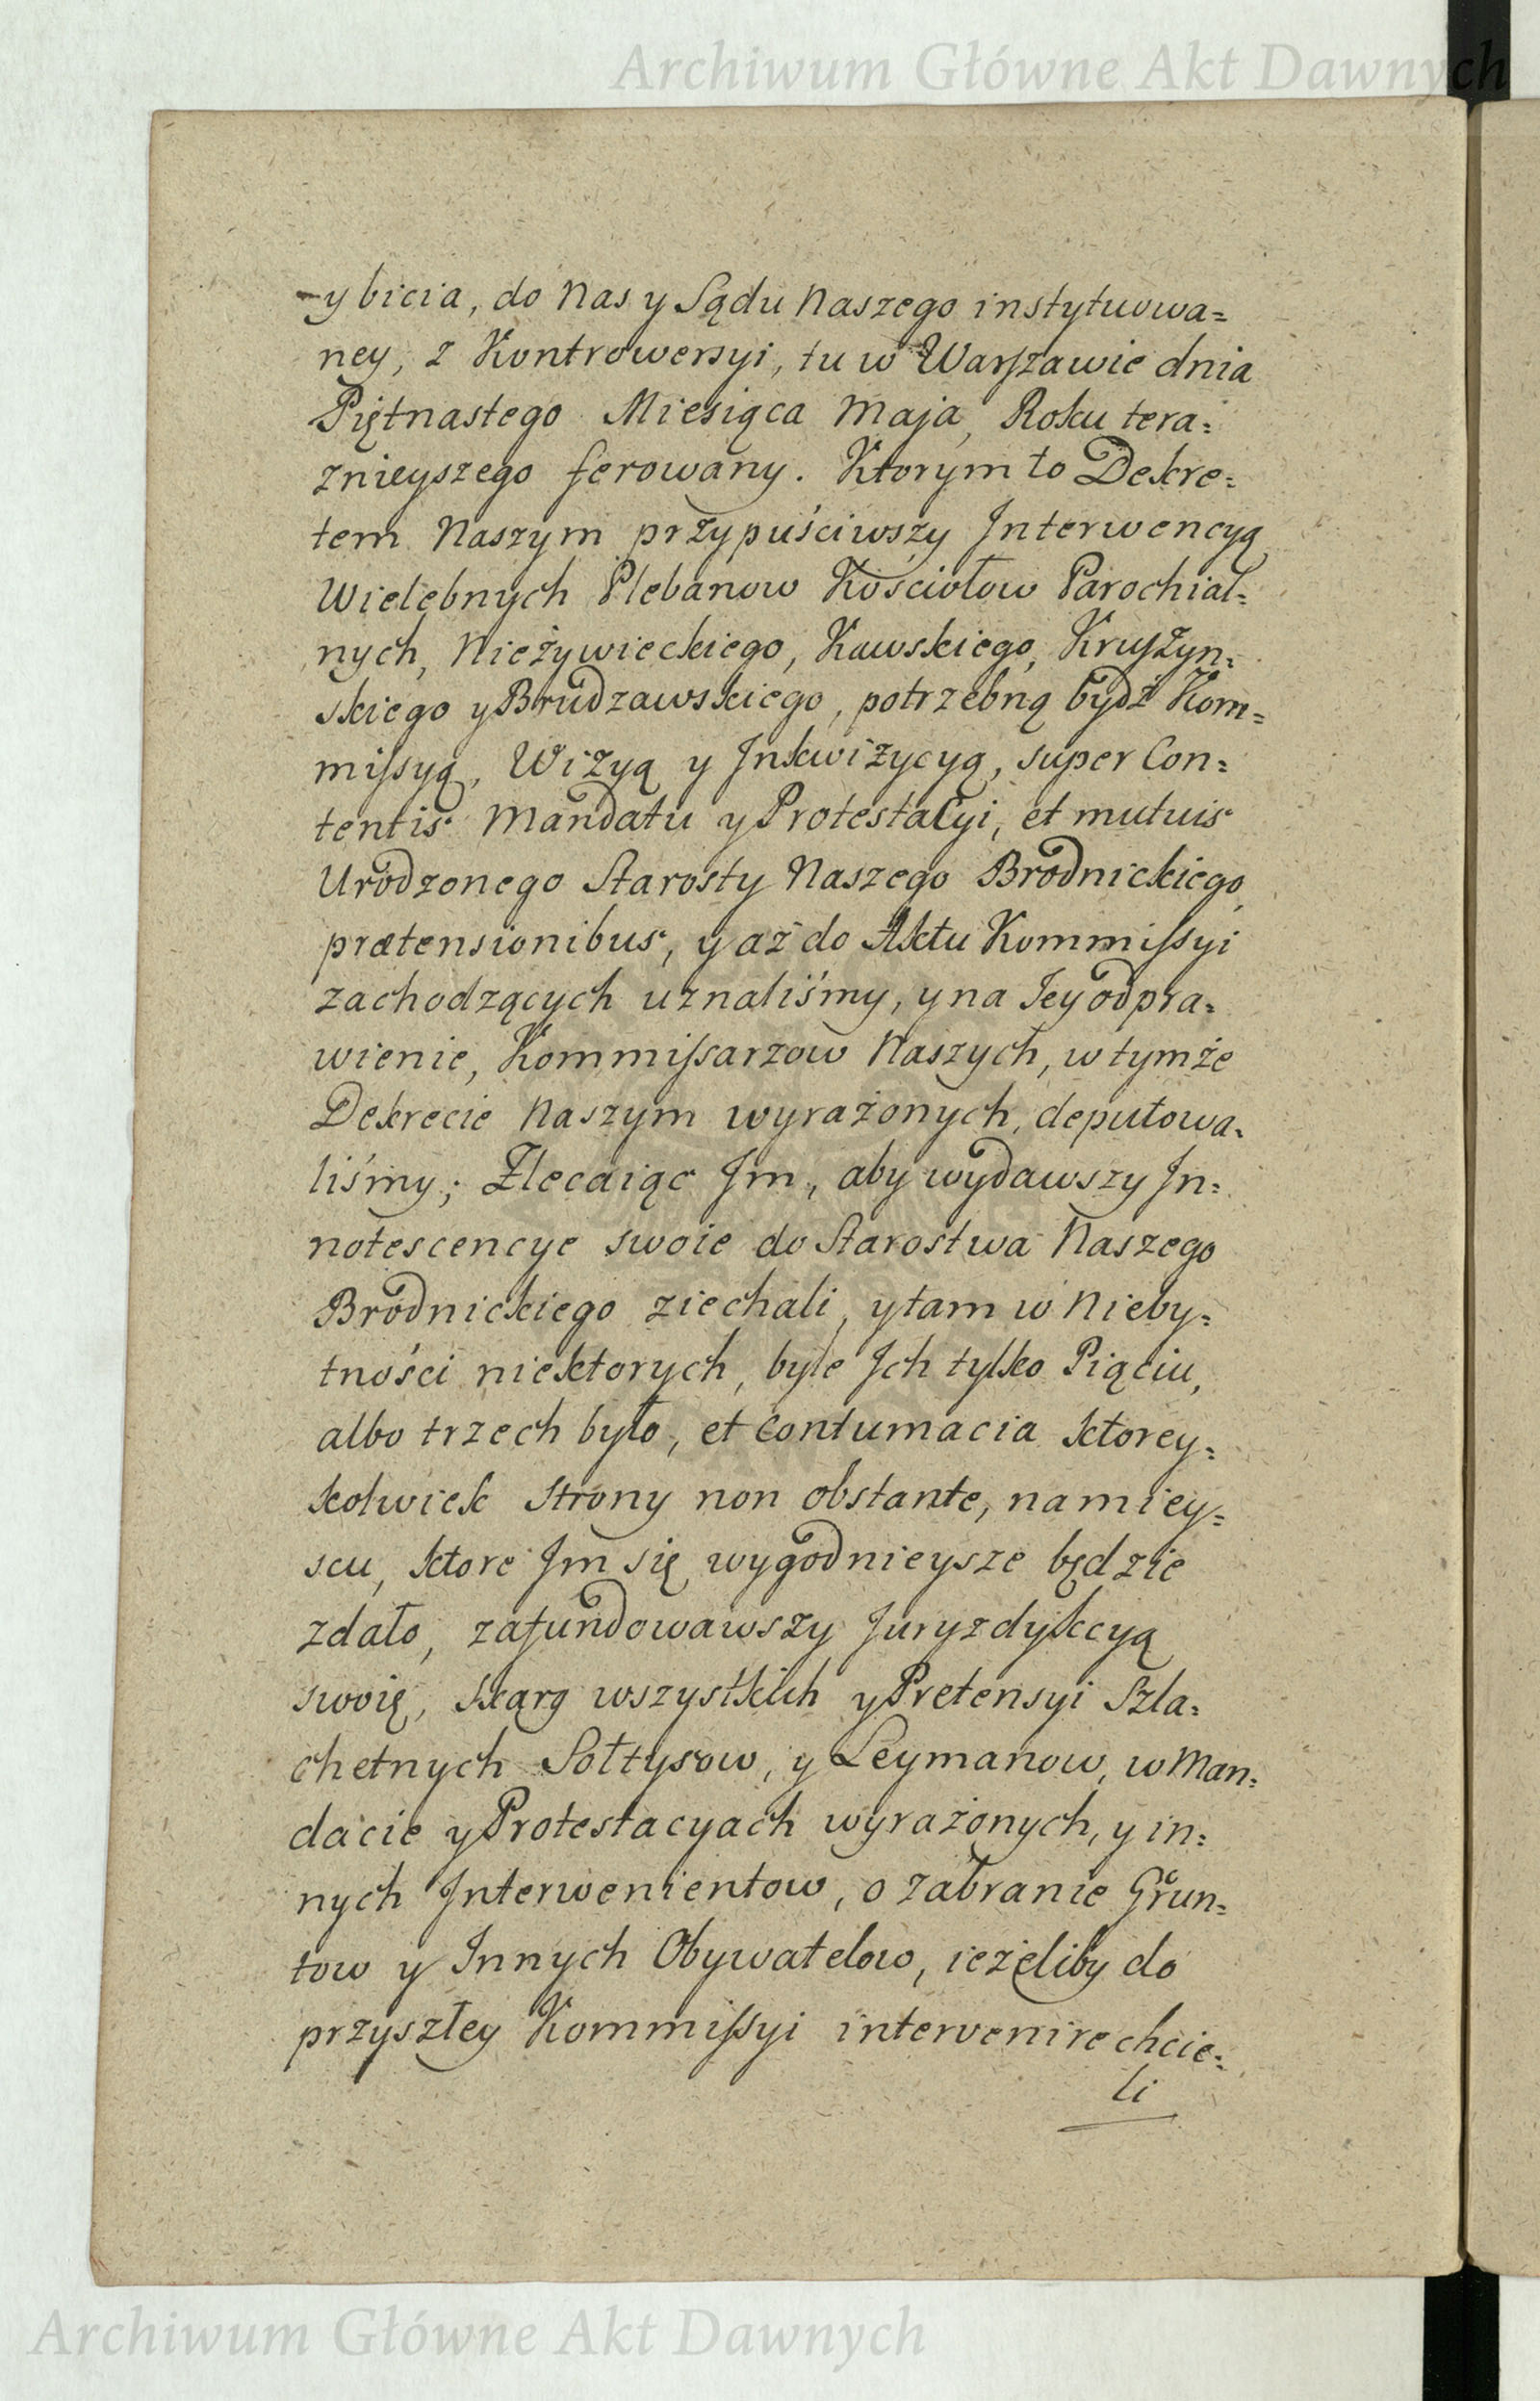 Archiwum Główne Akt Dawnych
y bicia, do Nas y Sądu Naszego instytuowa=
ney, z Kontrowersyi, tu w Warszawie dnia
Piętnastego Miesiąca Maja, Roku tera=
znieyszego ferowany. Ktorym to Dekre=
tem Naszym przypuściwszy Interwencyą
Wielebnych Plebanow Kościołow Parochial=
nych, Nieżywieckiego, Kawskiego, Kruszyn=
skiego y Brudzawskiego, potrzebną bydź Kom=
missyą, Wizyą y Inkwizycyą, super Con=
tentis Mandatu y Protestacyi, et mutuis
Urodzonego Starosty Naszego Brodnickiego,
prætensionibus, y aż do Aktu Kommissyi
zachodzących uznaliśmy, y na Jey odpra=
wienie, Kommissarzow Naszych, w tymże
Dekrecie Naszym wyrażonych, deputowa=
liśmy; Zlecaiąc Jm, aby wydawszy In=
notescencye swoie do Starostwa Naszego
Brodnickiego ziechali, y tam w Nieby=
tności niektorych, byle Jch tylko Piąciu,
albo trzech było, et Contumacia ktorey=
kolwiek Strony non obstante, na miey=
scu, ktore Jm się wygodnieysze będzie
zdało, zafundowawszy Juryzdykcyą
swoię, skarg wszystkich y Pretensyi Szla=
chetnych Sołtysow, y Leymanow, w Man=
dacie y Protestacyach wyrażonych, y in=
nych Interwenientow, o zabranie Grun=
tow y Innych Obywatelow, ieżeliby do
przyszłey Kommissyi intervenire chcie=
li
Archiwum Główne Akt Dawnych